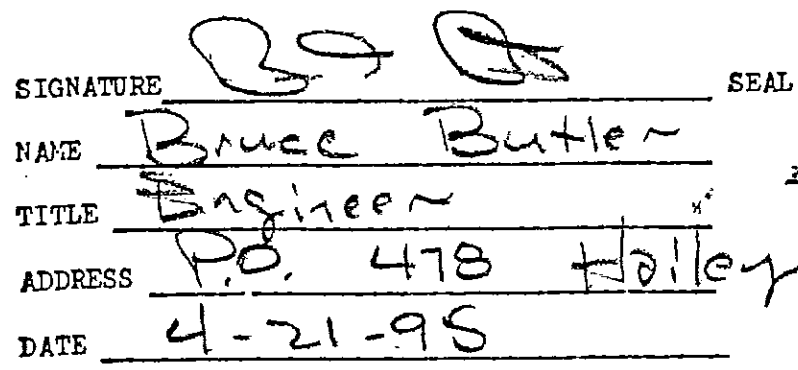 SIGNATURE SEAL
NAME Bruce Butler
TITLE Engineer
ADDRESS P.O. 478 Hailey
DATE 4-21-95